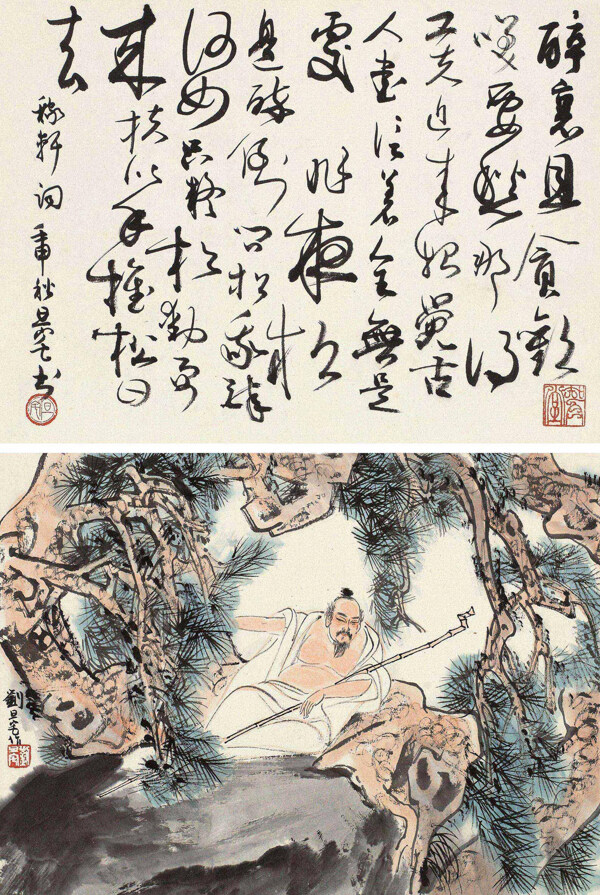 醉裏且貪歡
笑要愁那得
工夫近来始覺古
人書信着全無是
處昨夜松
邊醉倒問松我醉
何如只疑松動要
来扶以手推松曰
去
稼軒詞 壬申秋旦宅書
劉旦宅作